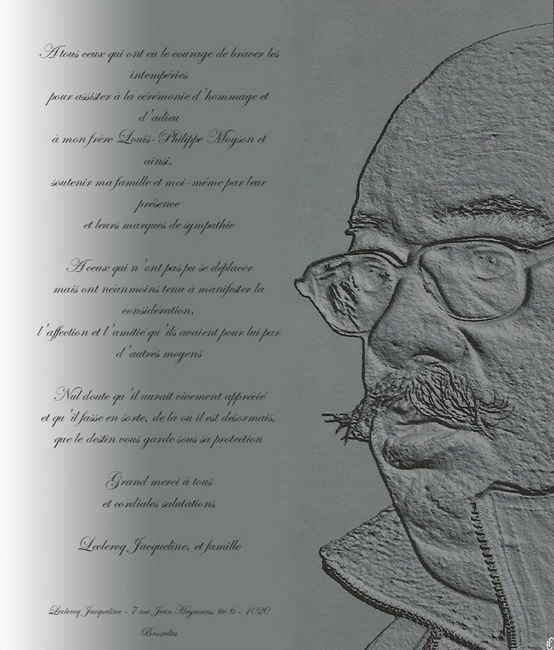 A tous ceux qui ont eu le courage de braver les
intempéries
pour assister à la cérémonie d'hommage et
d'adieu
à mon frère Louis-Philippe Moyson et
ainsi,
soutenir ma famille et moi-même par leur
présence
et leurs marques de sympathie
A ceux qui n'ont pas pu se déplacer
mais ont néanmoins tenu à manifester la
considération,
l'affection et l'amitié qu'ils avaient pour lui par
d'autres moyens
Nul doute qu'il aurait vivement apprécié
et qu'il fasse en sorte, de là où il est désormais,
que le destin vous garde sous sa protection
Grand merci à tous
et cordiales salutations
Leclercq Jacqueline, et famille
Leclercq Jacqueline - 7 rue Jean Heymans, bte 6 - 1020
Bruxelles